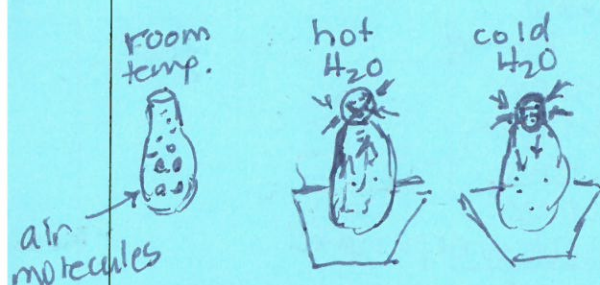 room
temp.
hot
H2O
cold
H2O
air
molecules